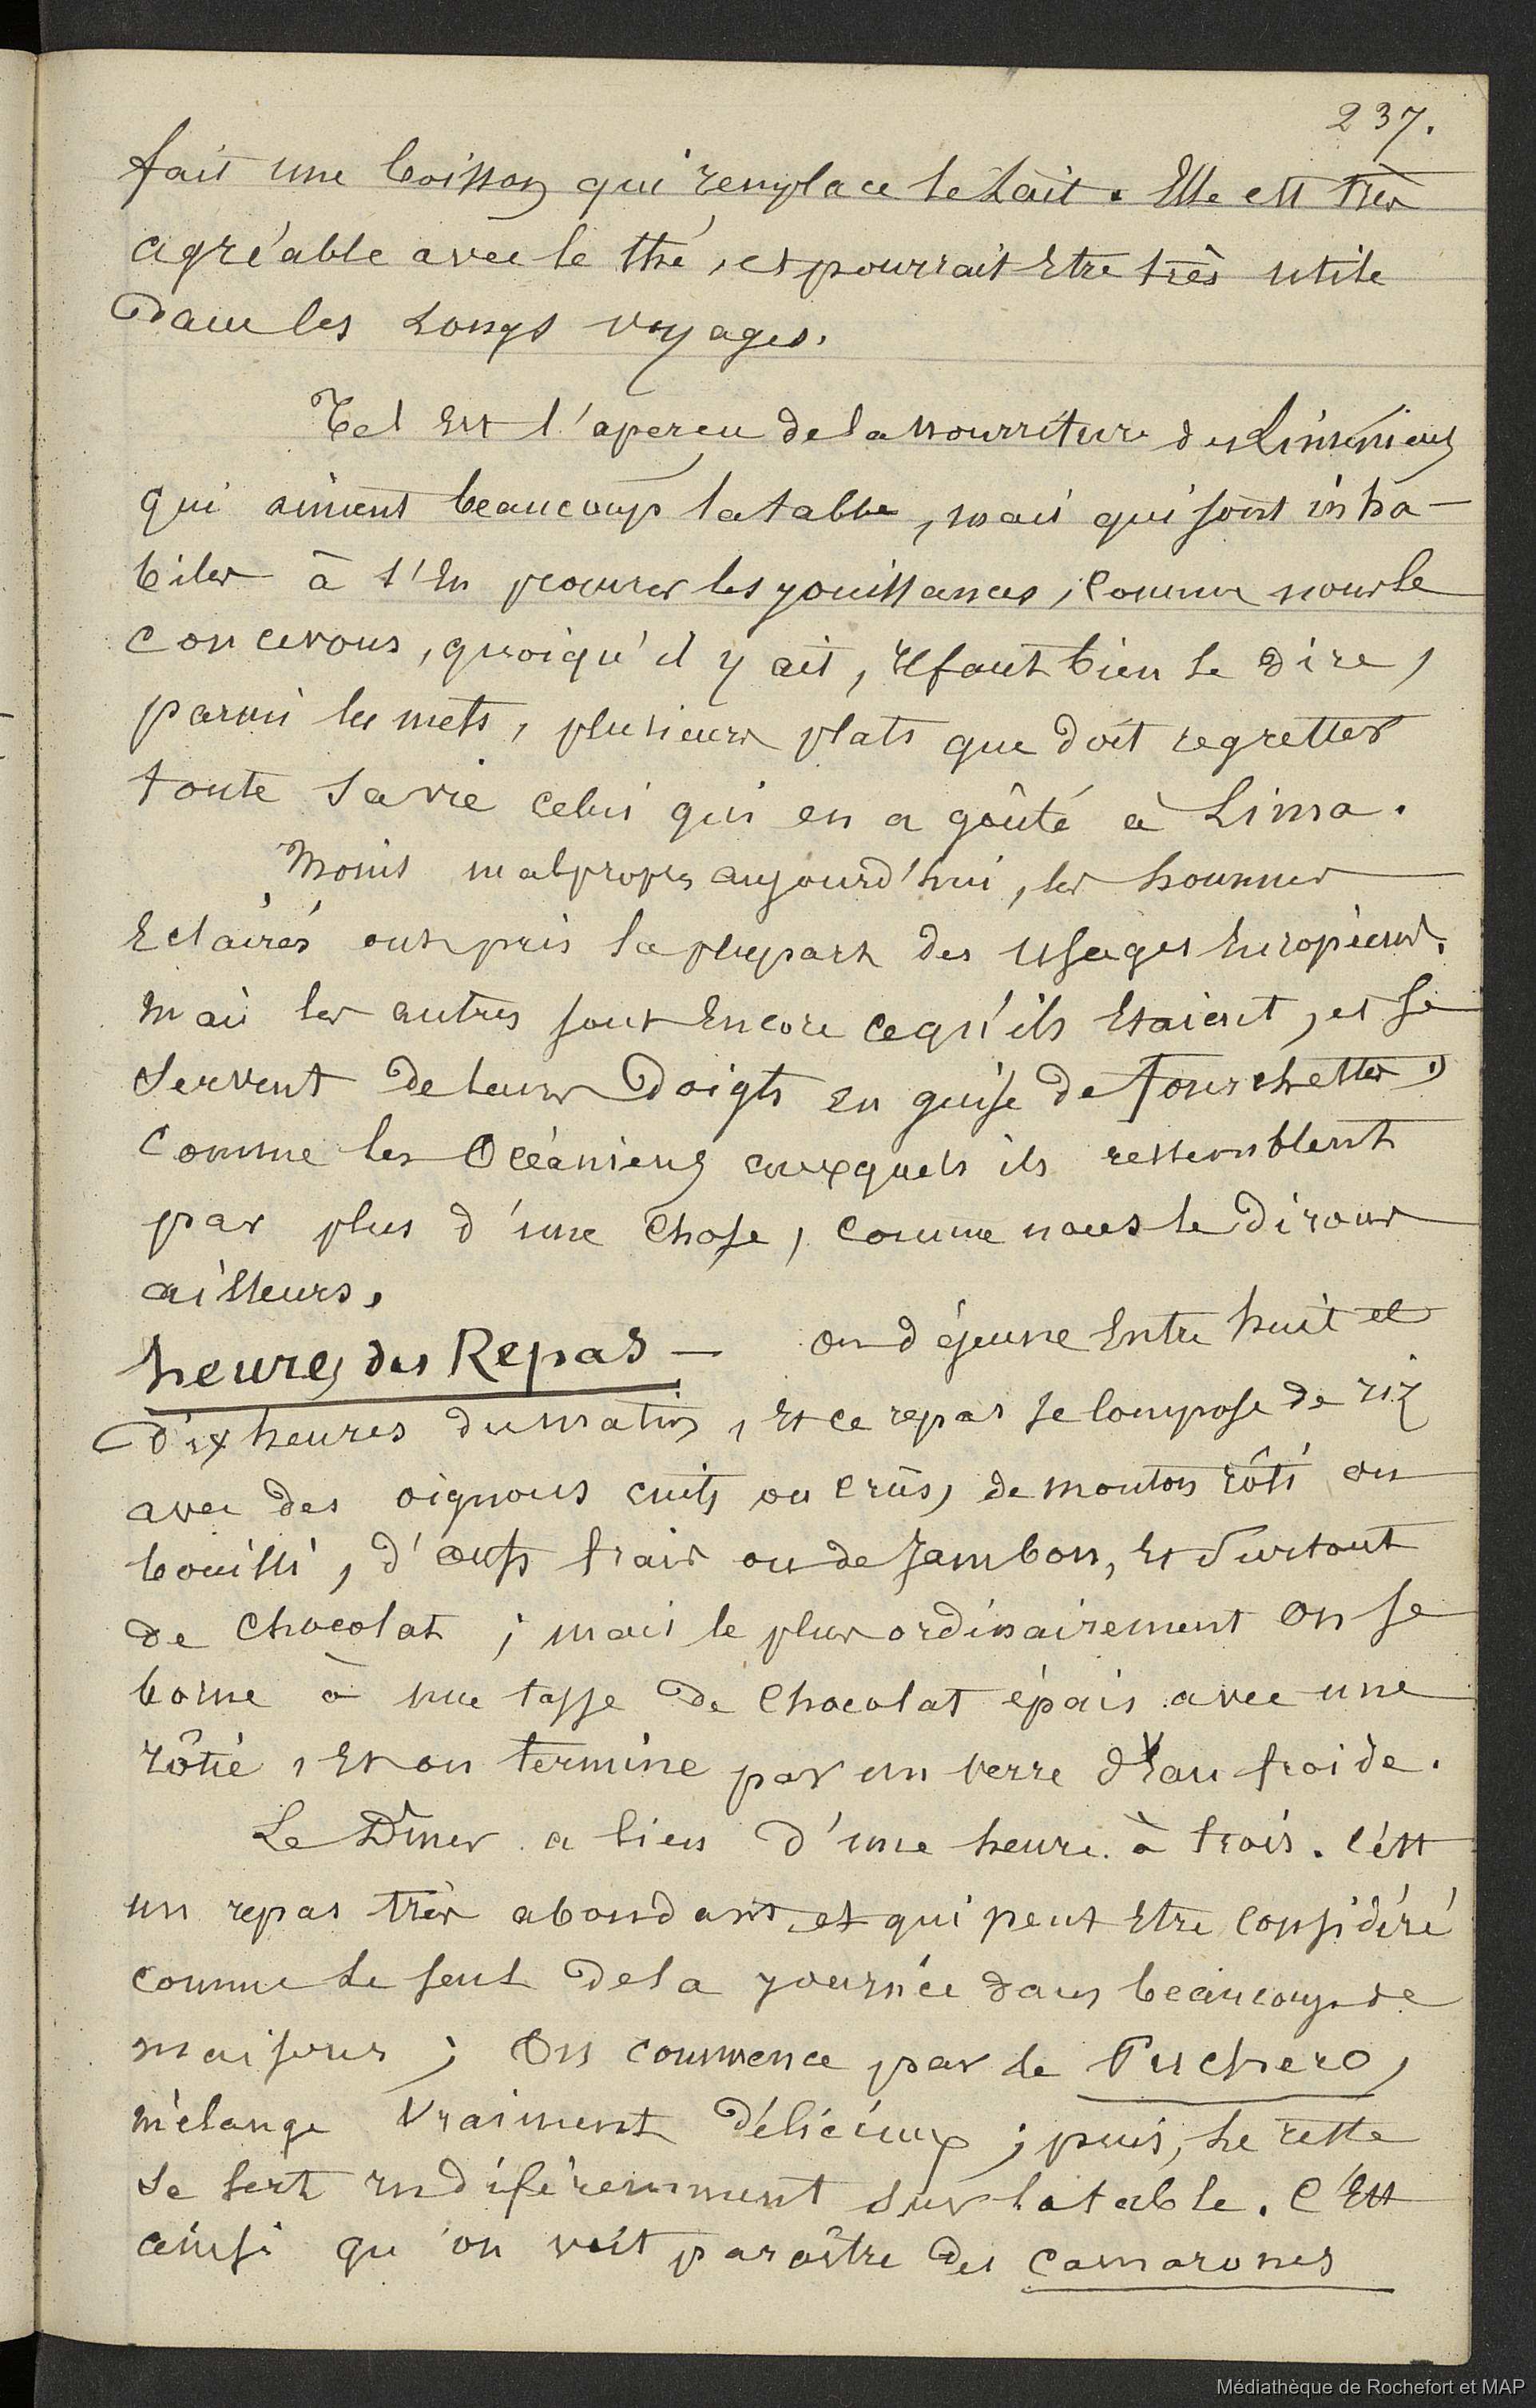 237.
fait une boisson qui remplace le Lait. Elle est très
agréable avec le thé, et pourrait Etre très utile
Dans les Longs voyages.
Tel Est l'aperçu de la nourriture des Liméniens
qui aiment beaucoup la table, mais qui sont inha-
biles à s'En procurer les jouissances, comme nous le
concevons, quoiqu'il y ait, Il faut bien le Dire,
parmi les mets, plusieurs plats que doit regretter
toute sa vie celui qui en a goûté à Lima.
Moins malpropres aujourd'hui, les hommes
Eclairés ont pris la plupart des usages Européens.
Mais les autres sont Encore ce qu'ils Etaient, et se
servent De leurs Doigts En guise de fourchettes,
Comme les Océaniens auxquels ils ressemblent
par plus d'une chose, comme nous le Dirons
ailleurs.
heures des Repas — on déjeune Entre huit et
Dix heures du matin, Et ce repas se compose de riz
avec des oignons cuits ou crûs, de mouton rôti ou
bouilli, d'œufs frais ou de Jambon, Et Surtout
de Chocolat ; mais le plus ordinairement On se
borne à une tasse de Chocolat épais avec une
rôtie, Et on termine par un verre d'Eau froide.
Le Dîner a lieu d'une heure à trois. C'est
un repas très abondant, et qui peut Etre considéré
comme le seul De la journée dans beaucoup de
maisons ; On commence par le Puchero,
mélange vraiment délicieux ; puis, le reste
se sert indiféremment sur la table. C'Est
ainsi qu'on voit paraître des camarones
Médiathèque de Rochefort et MAP